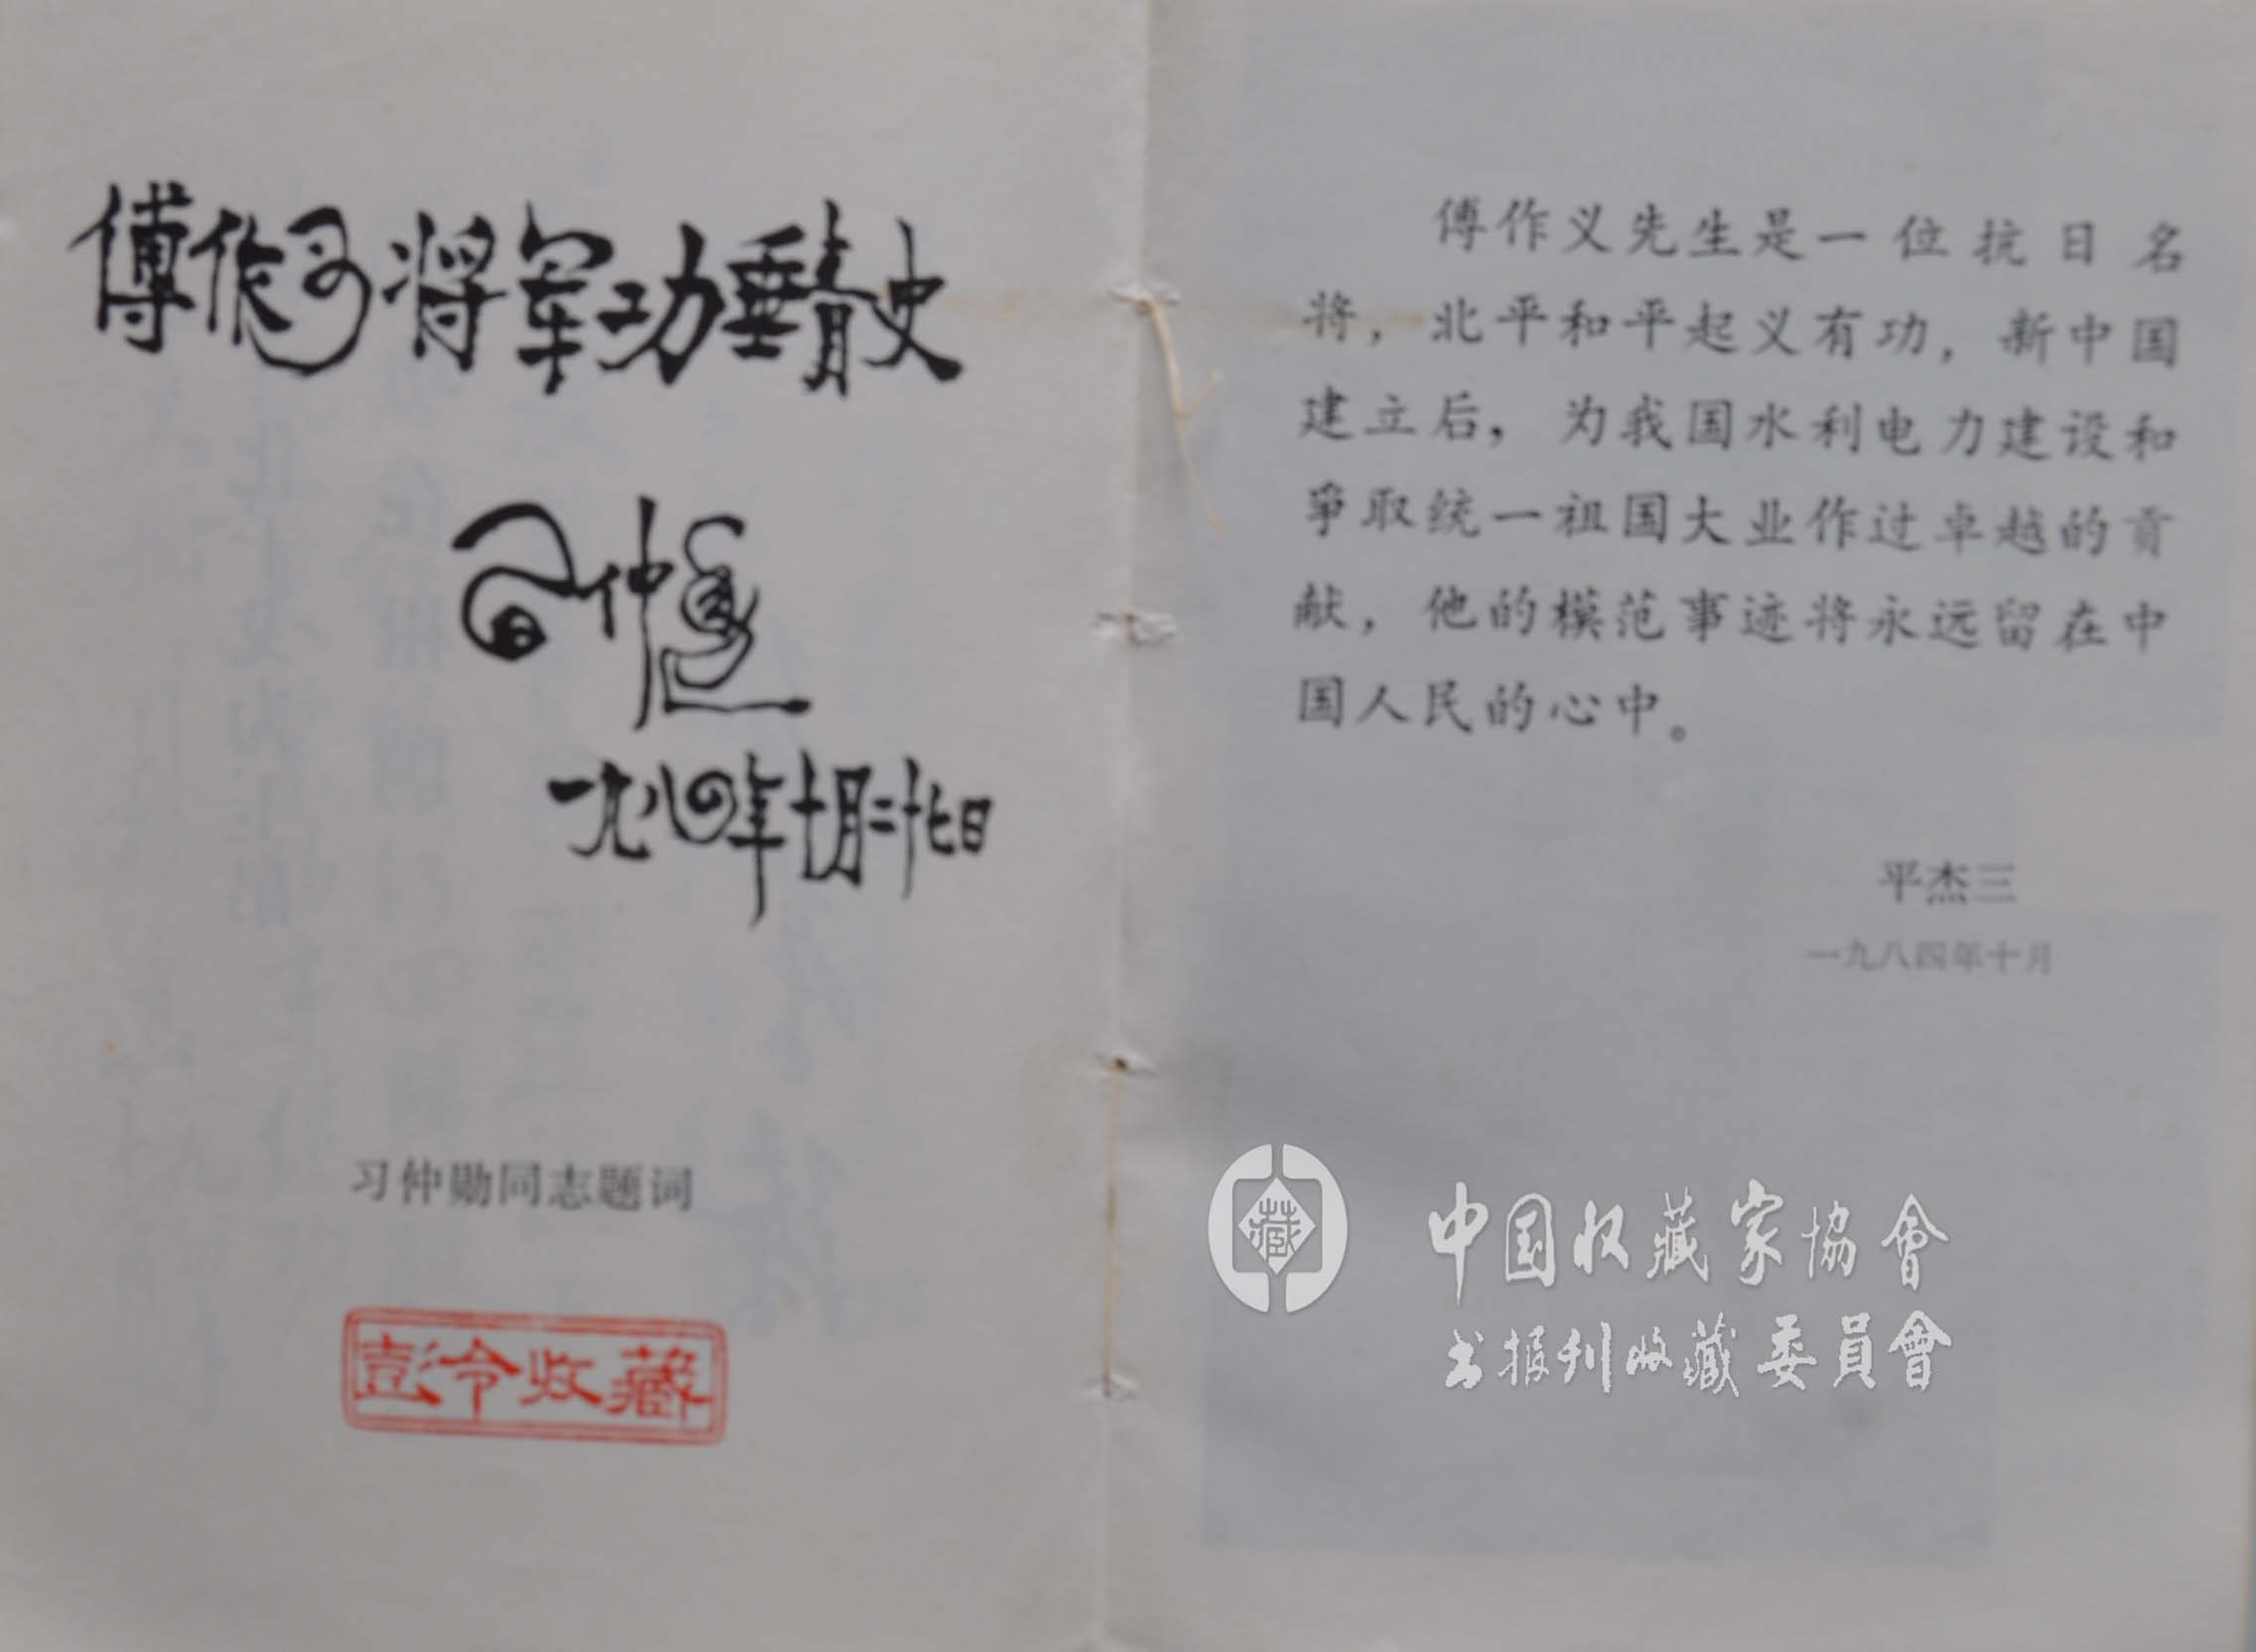 傅作义将军功垂青史
习仲勋
一九八四年十月二十七日
习仲勋同志题词
彭令收藏
傅作义先生是一位抗日名
将，北平和平起义有功，新中国
建立后，为我国水利电力建设和
争取统一祖国大业作过卓越的贡
献，他的模范事迹将永远留在中
国人民的心中。
平杰三
一九八四年十月
藏
中国收藏家協會
书报刊收藏委員會